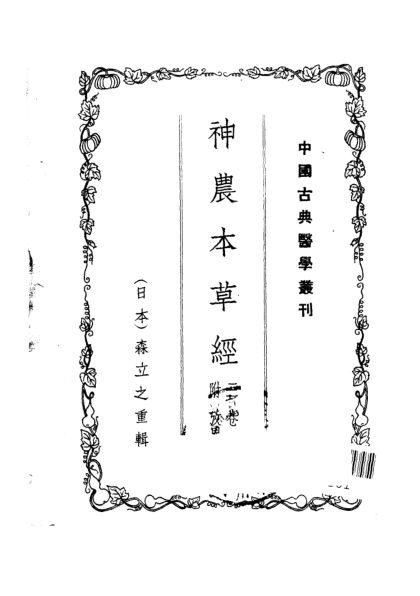 中國古典醫學叢刊
神農本草經
(日本)森立之重輯